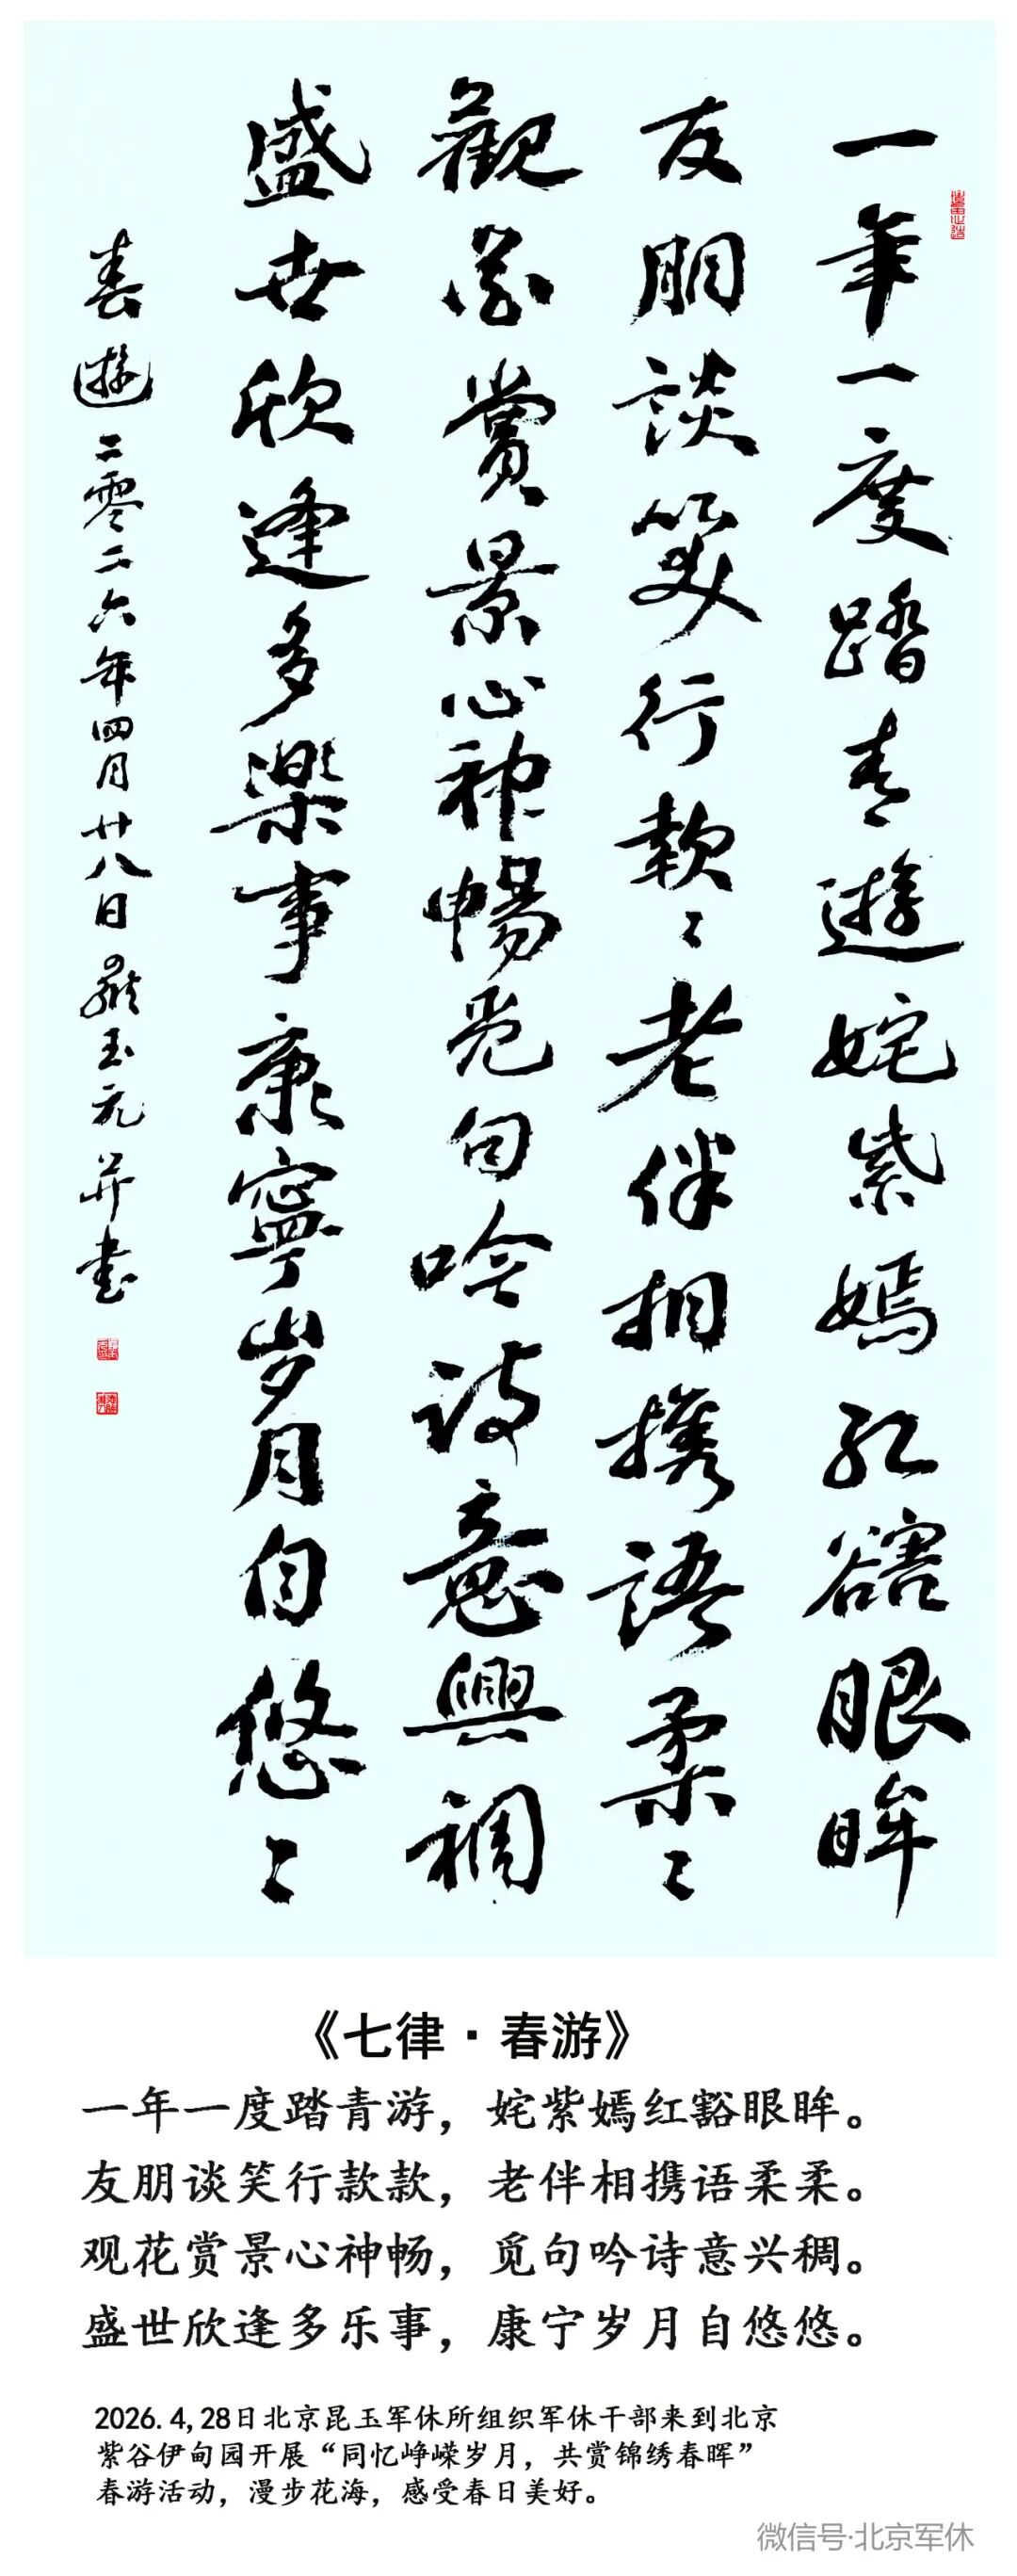 一年一度踏青遊姹紫嫣红豁眼眸
友朋談笑行款〻老伴相携語柔〻
觀花賞景心神暢觅句吟诗意興稠
盛世欣逢多樂事康寧岁月自悠〻
春遊二零二六年四月廿八日 玉元并書
《七律·春游》
一年一度踏青游，姹紫嫣红豁眼眸。
友朋谈笑行款款，老伴相携语柔柔。
观花赏景心神畅，觅句吟诗意兴稠。
盛世欣逢多乐事，康宁岁月自悠悠。
2026.4,28日北京昆玉军休所组织军休干部来到北京
紫谷伊甸园开展“同忆峥嵘岁月，共赏锦绣春晖”
春游活动，漫步花海，感受春日美好。
微信号·北京军休